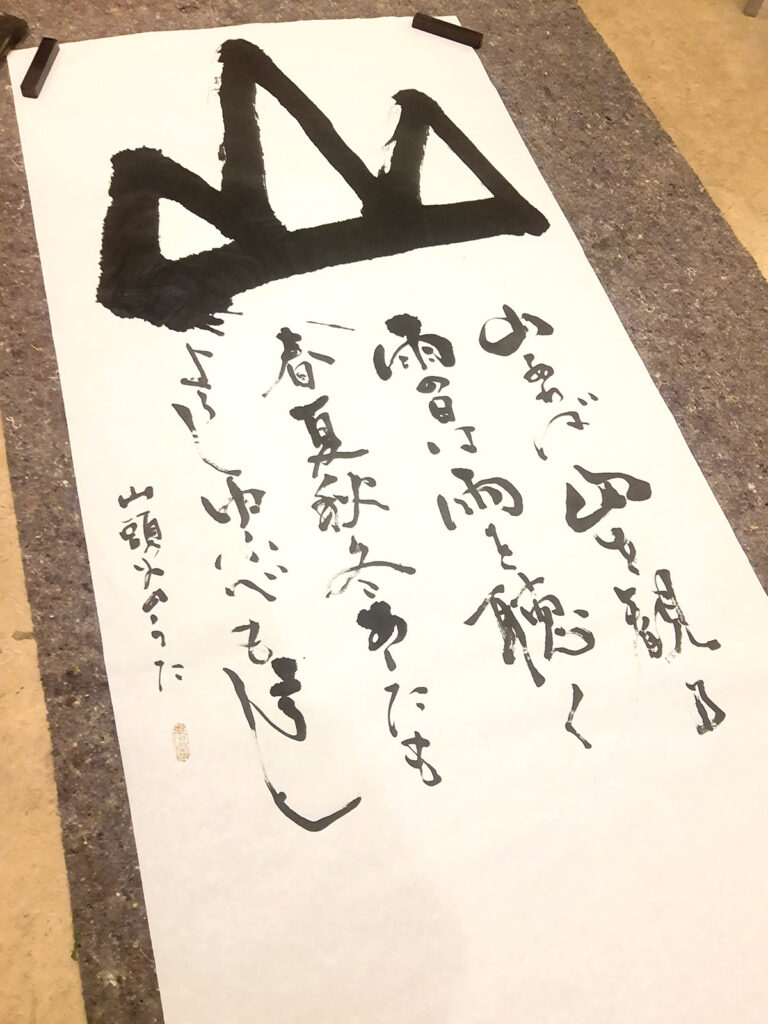 山
山あれば山を観る
雨の日は雨を聴く
春夏秋冬あしたも
よろしゆふべもよろし
山頭火のうた